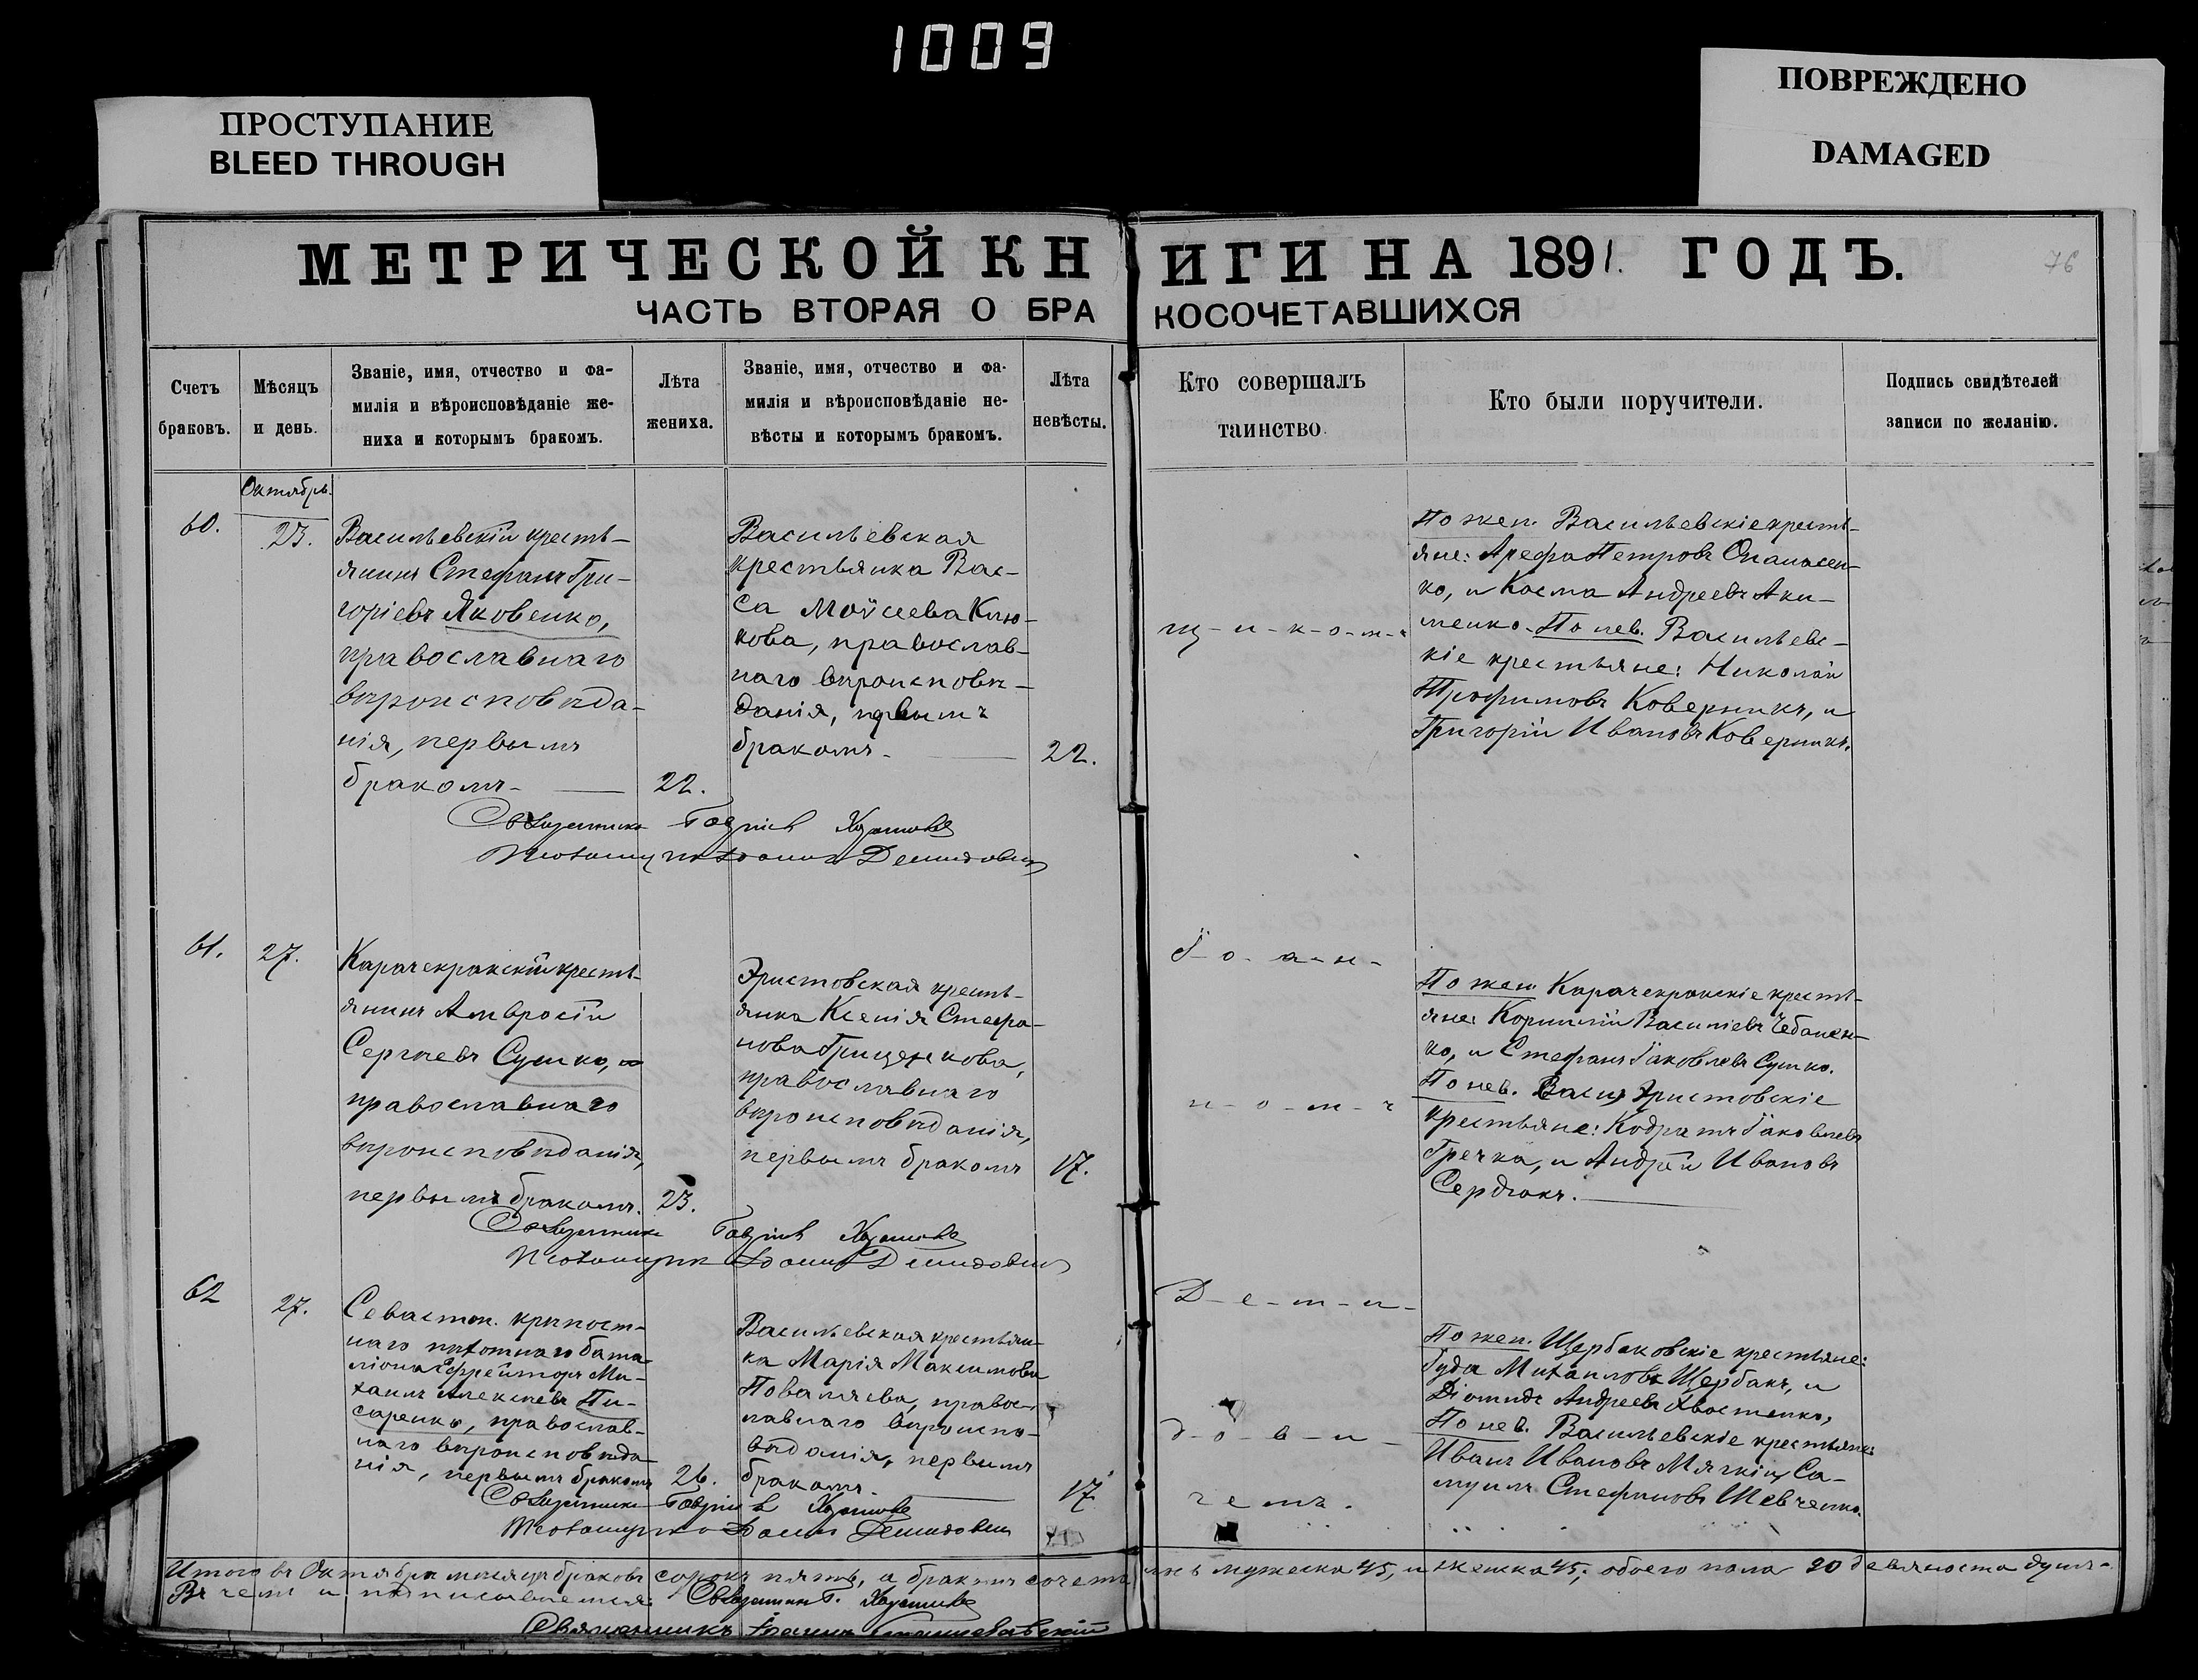 1009
ПРОСТУПАНИЕ
BLEED THROUGH
ПОВРЕЖДЕНО
DAMAGED
МЕТРИЧЕСКОЙ КНИГИ НА 1891. ГОДЪ.
76
ЧАСТЬ ВТОРАЯ О БРАКОСОЧЕТАВШИХСЯ
Счетъ
браковъ.
Мѣсяцъ
и день.
Званіе, имя, отчество и фа-
милія и вѣроисповѣданіе же-
ниха и которымъ бракомъ.
Лѣта
жениха.
Званіе, имя, отчество и фа-
милія и вѣроисповѣданіе не-
вѣсты и которымъ бракомъ.
Лѣта
невѣсты.
Кто совершалъ
таинство.
Кто были поручители.
Подпись свидѣтелей
записи по желанію.
Октябрь.
60.
23.
Васильевскій кресть-
янинъ Стефанъ Гри-
горіевъ Яковенко,
православнаго
вѣроисповѣда-
нія, первымъ
бракомъ-
22.
Васильевская
крестьянка Вас-
са Моѵсеева Клю-
кова, православ-
наго вѣроисповѣ-
данія, первымъ
бракомъ-
22.
щ-и-к-о-м-ъ
По жен. Васильевскіе кресть-
яне: Арефа Петровъ Опанасен-
ко, и Косма Андреевъ Аки-
менко. По нев. Васильевс-
кіе крестьяне: Николай
Трофимовъ Коверникъ, и
Григорій Ивановъ Коверникъ.
Священникъ Гавріилъ
Псаломщикъ Іоаннъ Демидовичъ
61.
27.
Карачекракскій кресть-
янинъ Амвросій
Сергѣевъ Сушко,
православнаго
вѣроисповѣданія,
первымъ бракомъ.
23.
Эристовская кресть-
янка Ксенія Стефа-
нова Гриценкова,
православнаго
вѣроисповѣданія,
первымъ бракомъ
17.
І-о-а-н-
н-о-м-ъ
По жен. Карачекракскіе кресть-
яне: Корнилій Василіевъ Чебанен-
ко, и Стефанъ Іаковлевъ Сушко.
По нев. Эристовскіе
крестьяне: Кодратъ Іаковлевъ
Гречка, и Андрей Ивановъ
Сердюкъ.
Священникъ Гавріилъ
Псаломщикъ Іоаннъ Демидовичъ
62
27.
Севастоп. крѣпост-
наго пѣхотнаго бата-
ліона Ефрейторъ Ми-
хаилъ Алексѣевъ Пи-
саренко, православ-
наго вѣроисповѣда-
нія, первымъ бракомъ
26.
Васильевская крестьян-
ка Марія Максимова
Поваляева, правос-
лавнаго вѣроиспо-
вѣданія, первымъ
бракомъ.
17.
Д-е-м-и-
д-о-в-и-
чемъ.
По жен. Щербаковскіе крестьяне:
Іуда Михаиловъ Щербакъ, и
Діомидъ Андреевъ Хвостенко,
По нев. Васильевскіе крестьяне:
Иванъ Ивановъ Мягкій, Са-
муилъ Стефановъ Шевченко.
Священникъ Гавріилъ
Псаломщикъ Іоаннъ Демидовичъ
Итого въ Октябрѣ мѣсяцѣ браковъ сорокъ пять, а бракомъ сочета лись мужеска 45, и женска 45; обоего пола 90 девяносто душъ-
Въ чемъ и подписываемся: Священникъ Г.
Священникъ Іоаннъ